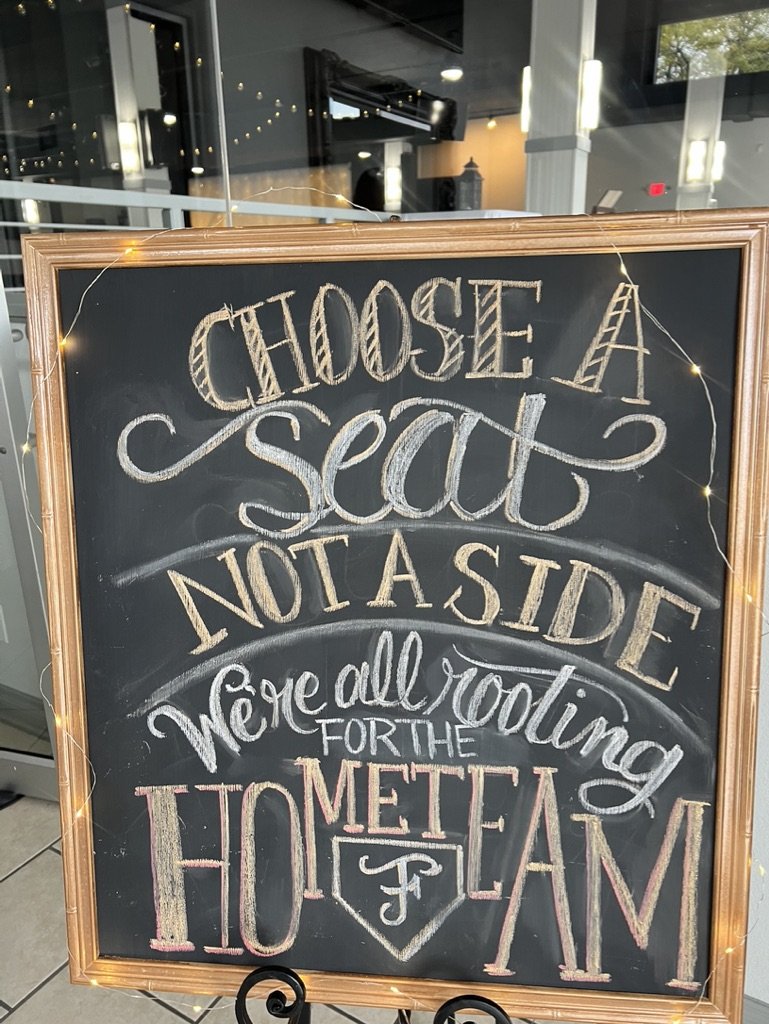 CHOOSE A
seat
NOT A SIDE
We're all rooting
FOR THE
HOMETEAM
F